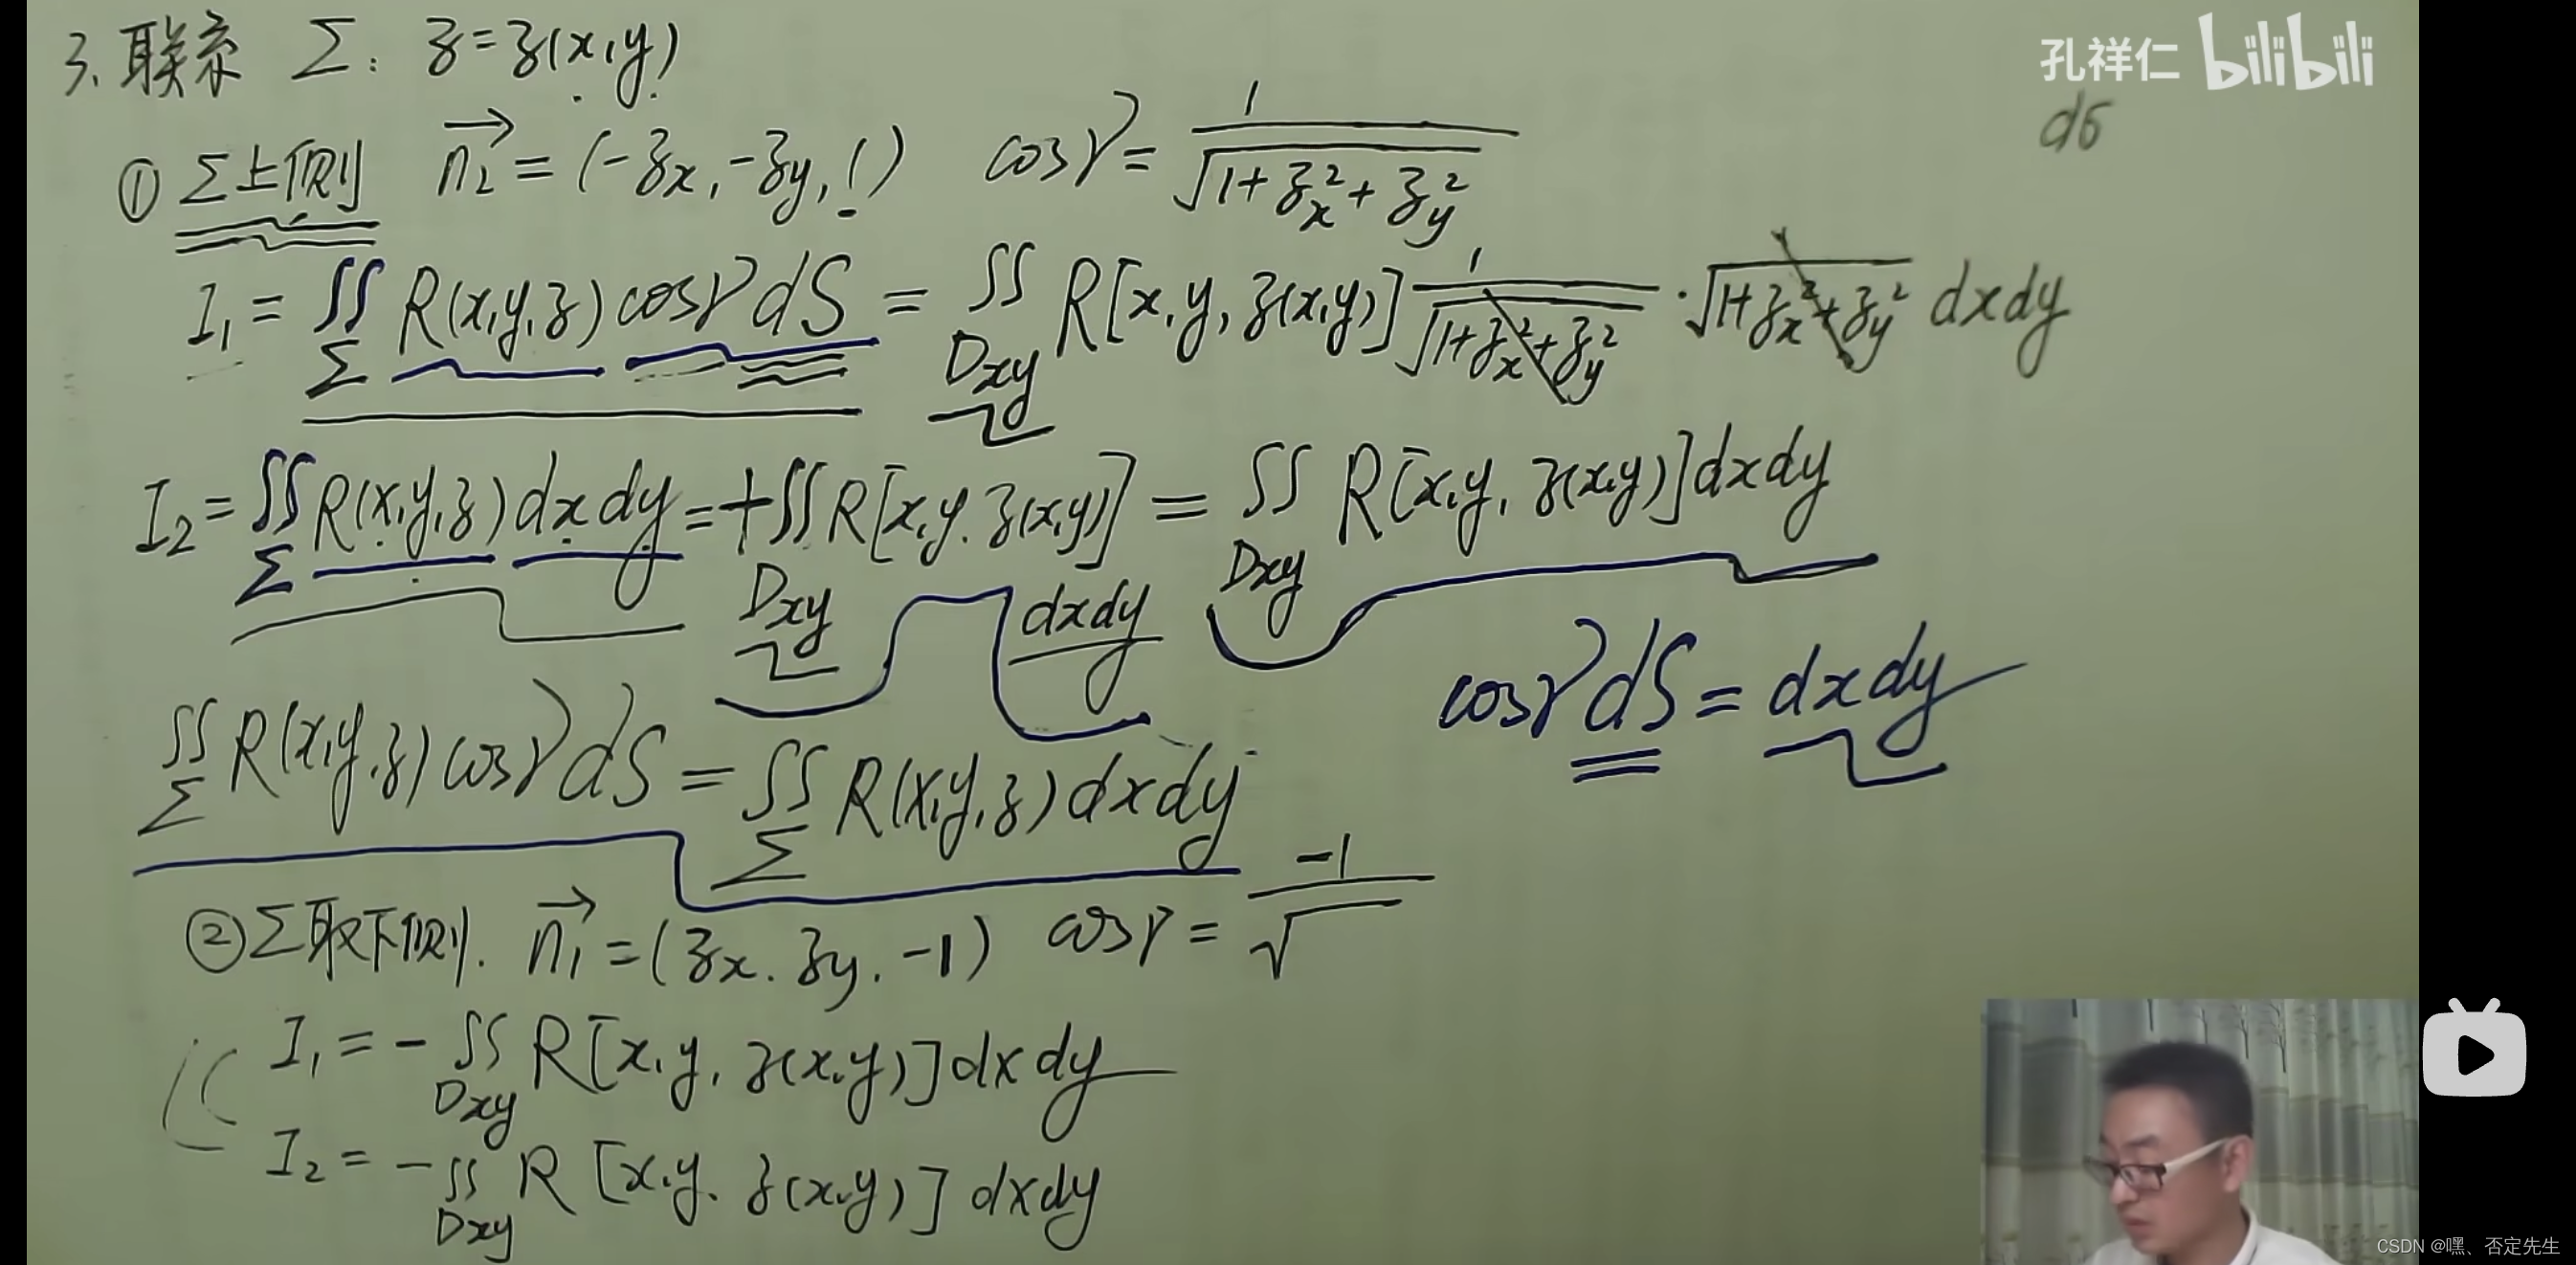 3. 联系 Σ: z=z(x,y)
孔祥仁 bilibili
dσ
① Σ上侧 n₂→ = (-zx, -zy, 1) cosγ = 1/√(1+zx²+zy²)
I₁ = ∬Σ R(x,y,z) cosγ dS = ∬Dxy R[x,y,z(x,y)] 1/√(1+zx²+zy²) · √(1+zx²+zy²) dxdy
I₂ = ∬Σ R(x,y,z) dxdy = +∬Dxy R[x,y,z(x,y)] dxdy = ∬Dxy R[x,y,z(x,y)] dxdy
cosγ dS = dxdy
∬Σ R(x,y,z) cosγ dS = ∬Σ R(x,y,z) dxdy
② Σ取下侧. n₁→ = (zx, zy, -1) cosγ = -1/√
I₁ = -∬Dxy R[x,y,z(x,y)] dxdy
I₂ = -∬Dxy R[x,y,z(x,y)] dxdy
CSDN @嘿、否定先生